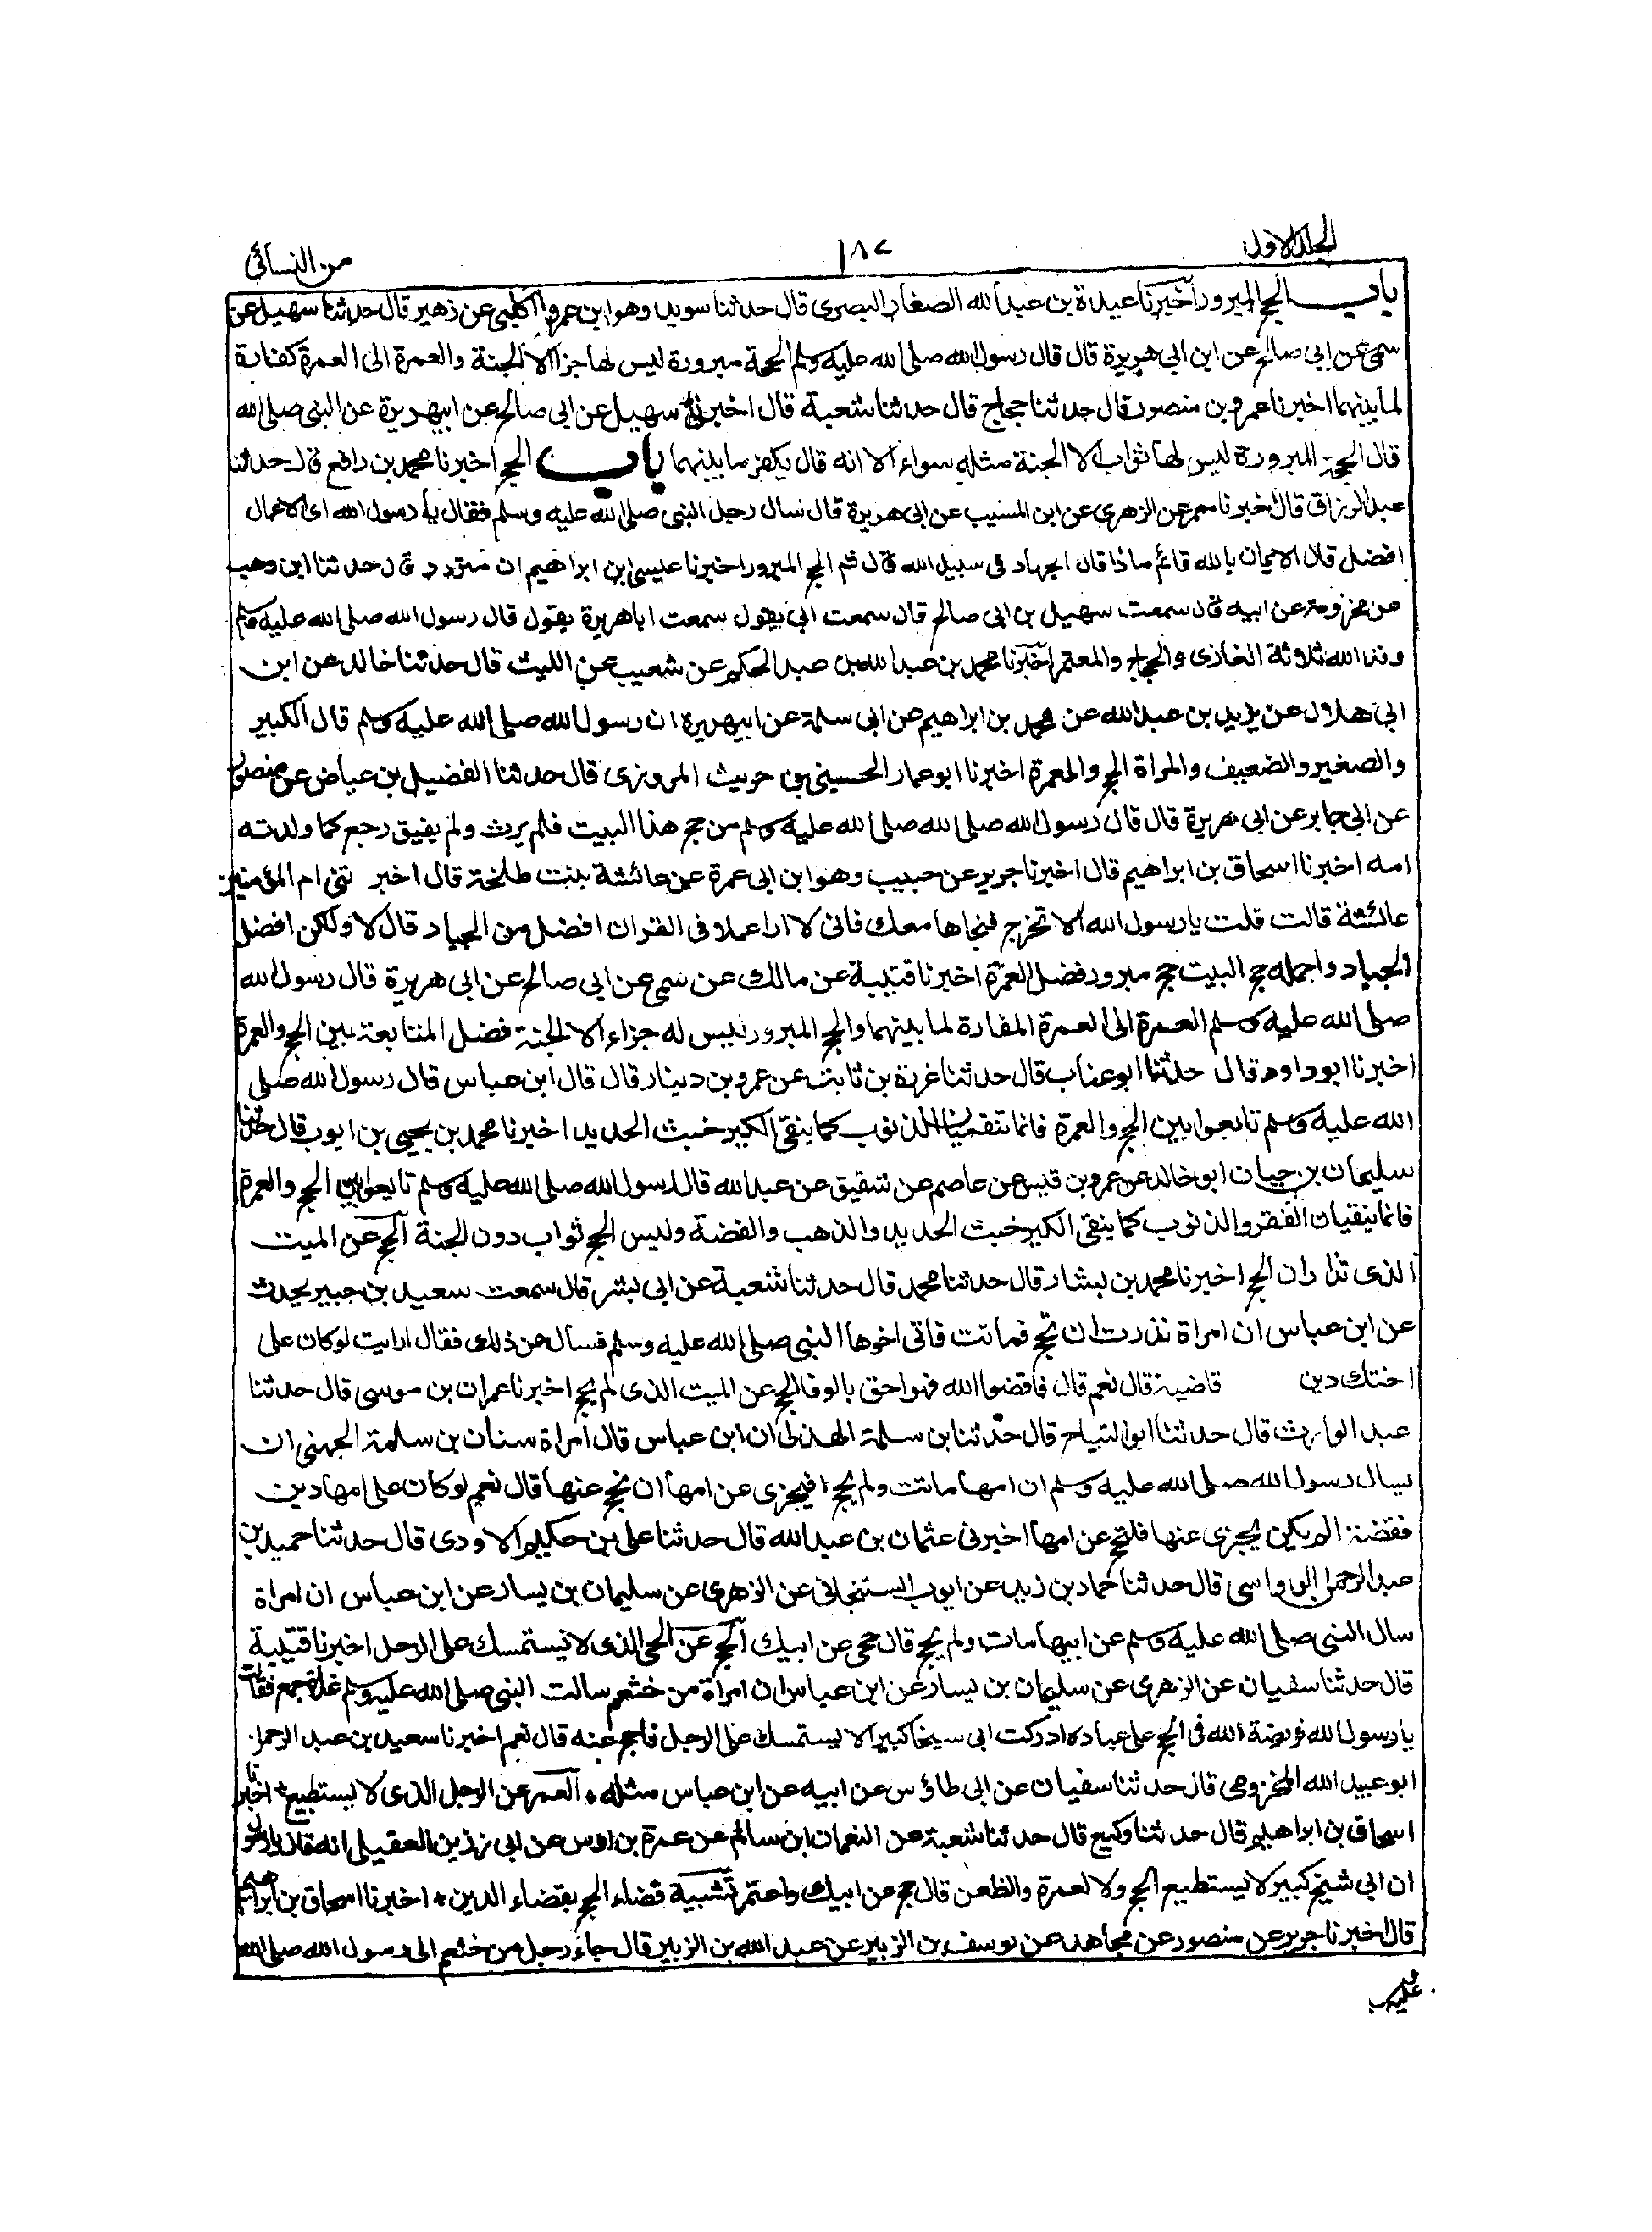 الجلد الاول
١٨٧
من النسائى
باب الحج المبرور اخبرنا عبدة بن عبد الله الصفار البصرى قال حدثنا سويد وهو ابن عمرو الكلبى عن زهير قال حدثنا سهيل عن
سمى عن ابى صالح عن ابن ابى هريرة قال قال رسول الله صلى الله عليه وسلم الحجة مبرورة ليس لها جزا الا الجنة والعمرة الى العمرة كفارة
لما بينهما اخبرنا عمرو بن منصور قال حدثنا حجاج قال حدثنا شعبة قال اخبرنى سهيل عن ابى صالح عن ابيهريرة عن النبى صلى الله
قال الحجة المبرورة ليس لها ثواب الا الجنة مثله سواء الا انه قال يكفر ما بينهما باب الحج اخبرنا محمد بن رافع قال حدثنا
عبد الرزاق قال اخبرنا معمر عن الزهرى عن ابن المسيب عن ابى هريرة قال سال رجل النبى صلى الله عليه وسلم فقال يا رسول الله اى الاعمال
افضل قال الايمان بالله قا ثم ماذا قال الجهاد فى سبيل الله قال ثم الحج المبرور اخبرنا عيسى بن ابراهيم ان مترود قال حدثنا ابن وهب
عن مخزومة عن ابيه قال سمعت سهيل بن ابى صالح قال سمعت ابى يقول سمعت اباهريرة يقول قال رسول الله صلى الله عليه وسلم
وفد الله ثلاثة الغازى والحاج والمعتمر اخبرنا محمد بن عبد الله بن عبد الحكم عن شعيب عن الليث قال حدثنا خالد عن ابن
ابى هلال عن يزيد بن عبد الله عن محمد بن ابراهيم عن ابى سلمة عن ابيهريرة ان رسول الله صلى الله عليه وسلم قال الكبير
والصغير والضعيف والمراة الحج والعمرة اخبرنا ابو عمار الحسينى بن حريث المروزى قال حدثنا الفضيل بن عياض عن منصور
عن ابى جابر عن ابى هريرة قال قال رسول الله صلى الله صلى الله عليه وسلم من حج هذا البيت فلم يرث ولم يفيق رجع كما ولدته
امه اخبرنا اسحاق بن ابراهيم قال اخبرنا جرير عن حبيب وهو ابن ابى عمرة عن عائشة بنت طلخة قال اخبر تنى ام المؤمنين
عائشة قالت قلت يا رسول الله الا تخرج فنجاها معك فانى لا ارا عملا فى القران افضل من الجهاد قال لا ولكن افضل
الجهاد واجمله حج البيت حج مبرور فضل العمرة اخبرنا قتيبة عن مالك عن سمى عن ابى صالح عن ابى هريرة قال رسول الله
صلى الله عليه وسلم العمرة الى العمرة المفارة لما بينهما والحج المبرور ليس له جزاء الا لجنة فضل المتابعة بين الحج والعمرة
اخبرنا ابو داود قال حدثنا ابو عتاب قال حدثنا غرزة بن ثابت عن عمرو بن دينار قال قال ابن عباس قال رسول الله صلى
الله عليه وسلم تابعوا بين الحج والعمرة فانما تنقيان الذنوب كما ينقى الكبر خبث الحديد اخبرنا محمد بن يحيى بن ايوب قال حدثنا
سليمان بن حيان ابو خالد عن عمرو بن قيس عن عاصم عن شقيق عن عبد الله قال رسول الله صلى الله عليه وسلم تابعوا بين الحج والعمرة
فانما ينقيان الفقر والذنوب كما ينقى الكير خبث الحديد والذهب والفضة وليس الحج ثواب دون الجنة الحج عن الميت
الذى نذر ان الحج اخبرنا محمد بن بشار قال حدثنا محمد قال حدثنا شعبة عن ابى بشر قال سمعت سعيد بن جبير يحدث
عن ابن عباس ان امراة نذرت ان تحج فماتت فاتى اخوها النبى صلى الله عليه وسلم فسال عن ذلك فقال ارايت لو كان على
اختك دين قاضية قال نعم قال فاقضوا الله فهو احق بالوفا الحج عن الميت الذى لم يحج اخبرنا عمران بن موسى قال حدثنا
عبد الوارث قال حدثنا ابو التياح قال حدثنا بن سلمة الهذلى ان ابن عباس قال امراة سنان بن سلمة الجهنى ان
يسال رسول الله صلى الله عليه وسلم ان امها ماتت ولم يحج افيجزى عن امها ان نحج عنها قال نعم لو كان على امها دين
فقضته الم يكن يجزى عنها فلتحج عن امها اخبرنى عثمان بن عبد الله قال حدثنا على بن حكيم الاودى قال حدثنا حميد بن
عبد الرحمن الرواسى قال حدثنا حماد بن زيد عن ايوب السنتجانى عن الزهرى عن سليمان بن يسار عن ابن عباس ان امراة
سال النبى صلى الله عليه وسلم عن ابيها مات ولم يحج قال حجى عن ابيك الحج عن الحى الذى لا تيستمسك على الرحل اخبرنا قتيبة
قال حدثنا سفيان عن الزهرى عن سليمان بن يسار عن ابن عباس ان امراة من خثعم سالت النبى صلى الله عليه وسلم غداة جمع فقالت
يا رسول الله فريضة الله فى الحج على عباده ادركت ابى سيخا كبيرا لا يستمسك على الرحل فاحج عنه قال نعم اخبرنا سعيد بن عبد الرحمن
ابو عبيد الله المخزومى قال حدثنا سفيان عن ابى طاؤس عن ابيه عن ابن عباس مثله العمر عن الرجل الذى لا يستطيع اخبرنا
اسحاق بن ابراهيم قال حدثنا وكيع قال حدثنا شعبة عن النعمان ابن سالم عن عمرة بن اوس عن ابى رزين العقيلى انه قال يا رسول
ان ابى شيخ كبير لا يستطيع الحج ولا لعمرة والظعن قال حج عن ابيك واعتمر تشبية قضاء الحج بقضاء الدين * اخبرنا اسحاق بن ابراهيم
قال اخبرنا جرير عن منصور عن مجاهد عن يوسف بن الزبير عن عبد الله بن الزبير قال جاء رجل من خثعم الى رسول الله صلى الله